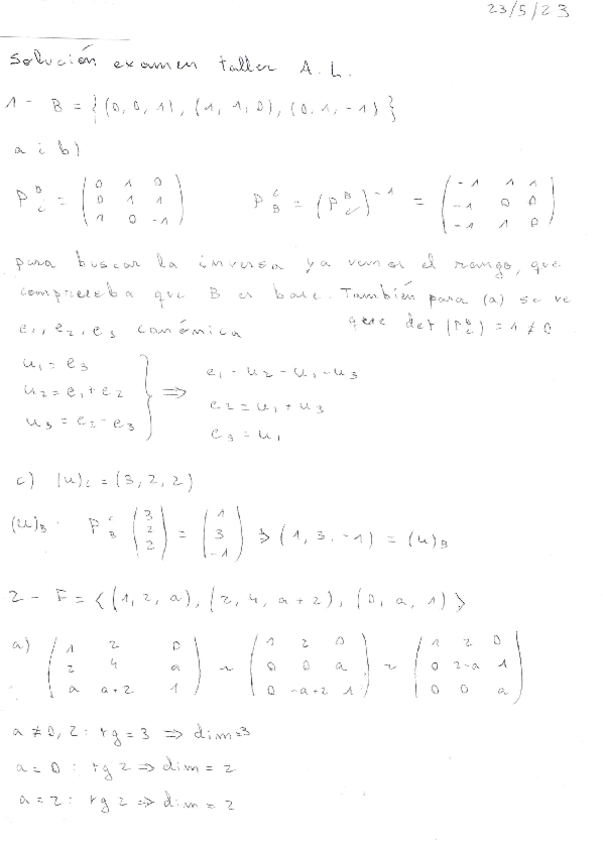 23/5/23
Solución examen taller A.L.
1 - B = {(0, 0, 1), (1, 1, 0), (0, 1, -1)}
a i b)
P^B_C = (0 1 0; 0 1 1; 1 0 -1) P^C_B = (P^B_C)^-1 = (-1 1 1; -1 0 0; -1 1 0)
para buscar la inversa ya vemos el rango, que
comprueba que B es base. También para (a) se ve
e1, e2, e3 canónica que det (P^B_C) = 1 ≠ 0
u1 = e3
u2 = e1 + e2
u3 = e2 - e3
⇒
e1 = u2 - u1 - u3
e2 = u1 + u3
e3 = u1
c) (u)c = (3, 2, 2)
(u)B = P^C_B (3; 2; 2) = (1; 3; -1) ⇒ (1, 3, -1) = (u)B
2 - F = <(1, 2, a), (2, 4, a+2), (0, a, 1)>
a) (1 2 0; 2 4 a; a a+2 1) ~ (1 2 0; 0 0 a; 0 -a+2 1) ~ (1 2 0; 0 2-a 1; 0 0 a)
a ≠ 0, 2: rg = 3 ⇒ dim = 3
a = 0: rg 2 ⇒ dim = 2
a = 2: rg 2 ⇒ dim = 2